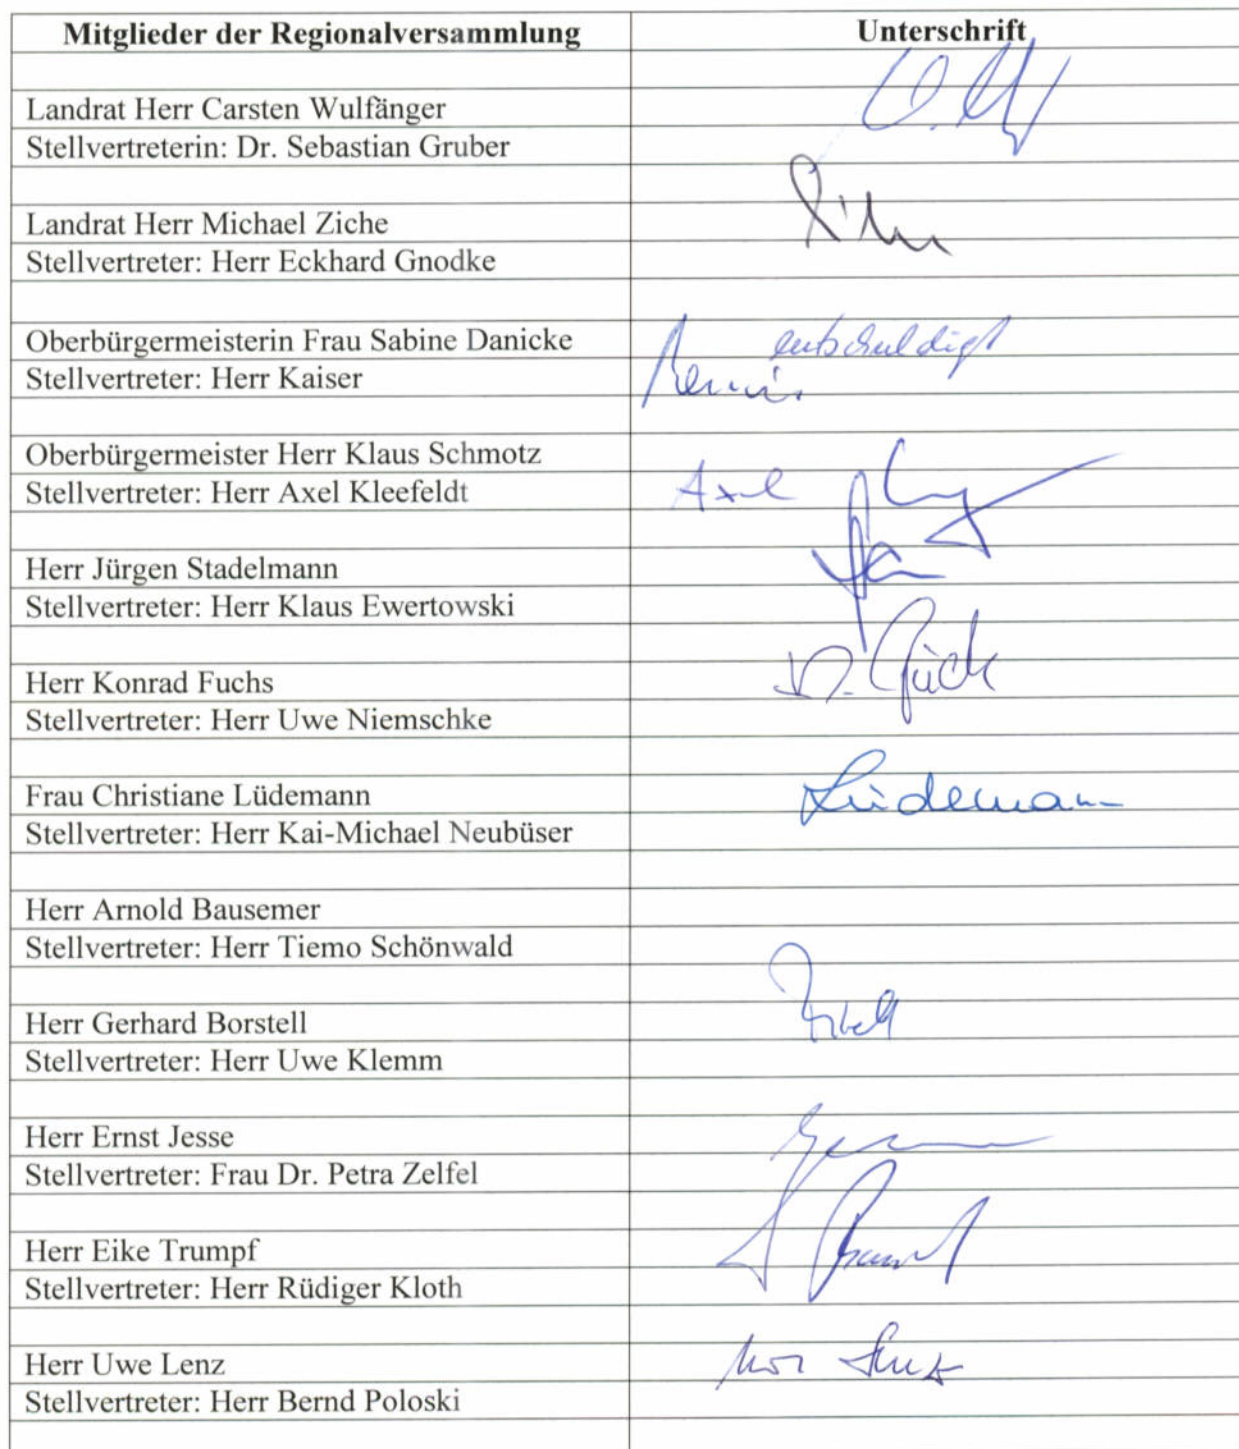 Mitglieder der Regionalversammlung Unterschrift
Landrat Herr Carsten Wulfänger
Stellvertreterin: Dr. Sebastian Gruber
Landrat Herr Michael Ziche
Stellvertreter: Herr Eckhard Gnodke
Oberbürgermeisterin Frau Sabine Danicke entschuldigt
Stellvertreter: Herr Kaiser
Oberbürgermeister Herr Klaus Schmotz
Stellvertreter: Herr Axel Kleefeldt Axel
Herr Jürgen Stadelmann
Stellvertreter: Herr Klaus Ewertowski
Herr Konrad Fuchs
Stellvertreter: Herr Uwe Niemschke
Frau Christiane Lüdemann Lüdemann
Stellvertreter: Herr Kai-Michael Neubüser
Herr Arnold Bausemer
Stellvertreter: Herr Tiemo Schönwald
Herr Gerhard Borstell
Stellvertreter: Herr Uwe Klemm
Herr Ernst Jesse
Stellvertreter: Frau Dr. Petra Zelfel
Herr Eike Trumpf
Stellvertreter: Herr Rüdiger Kloth
Herr Uwe Lenz
Stellvertreter: Herr Bernd Poloski